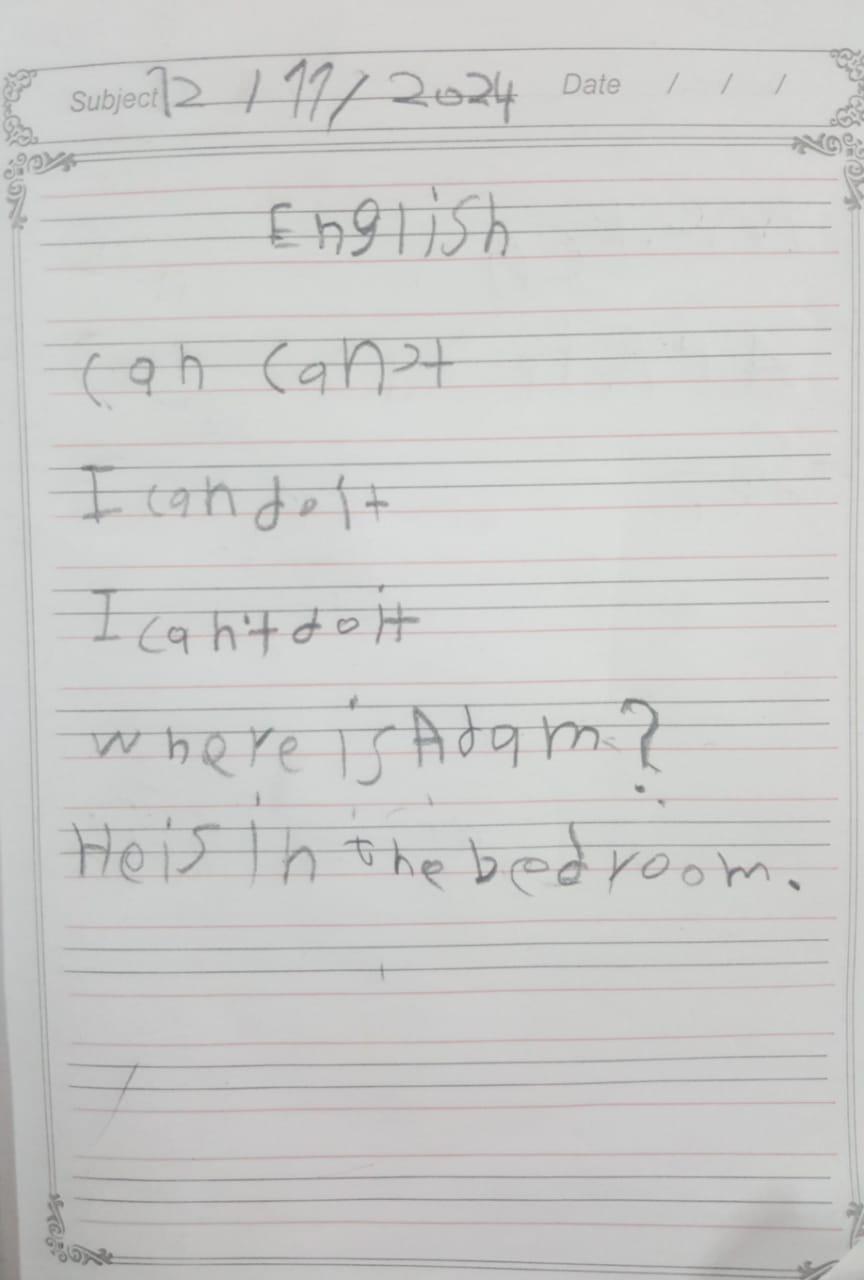 Subject 12/11/2024 Date / / /
English
can can't
I can do it
I can't do it
where is Adam?
He is in the bedroom.